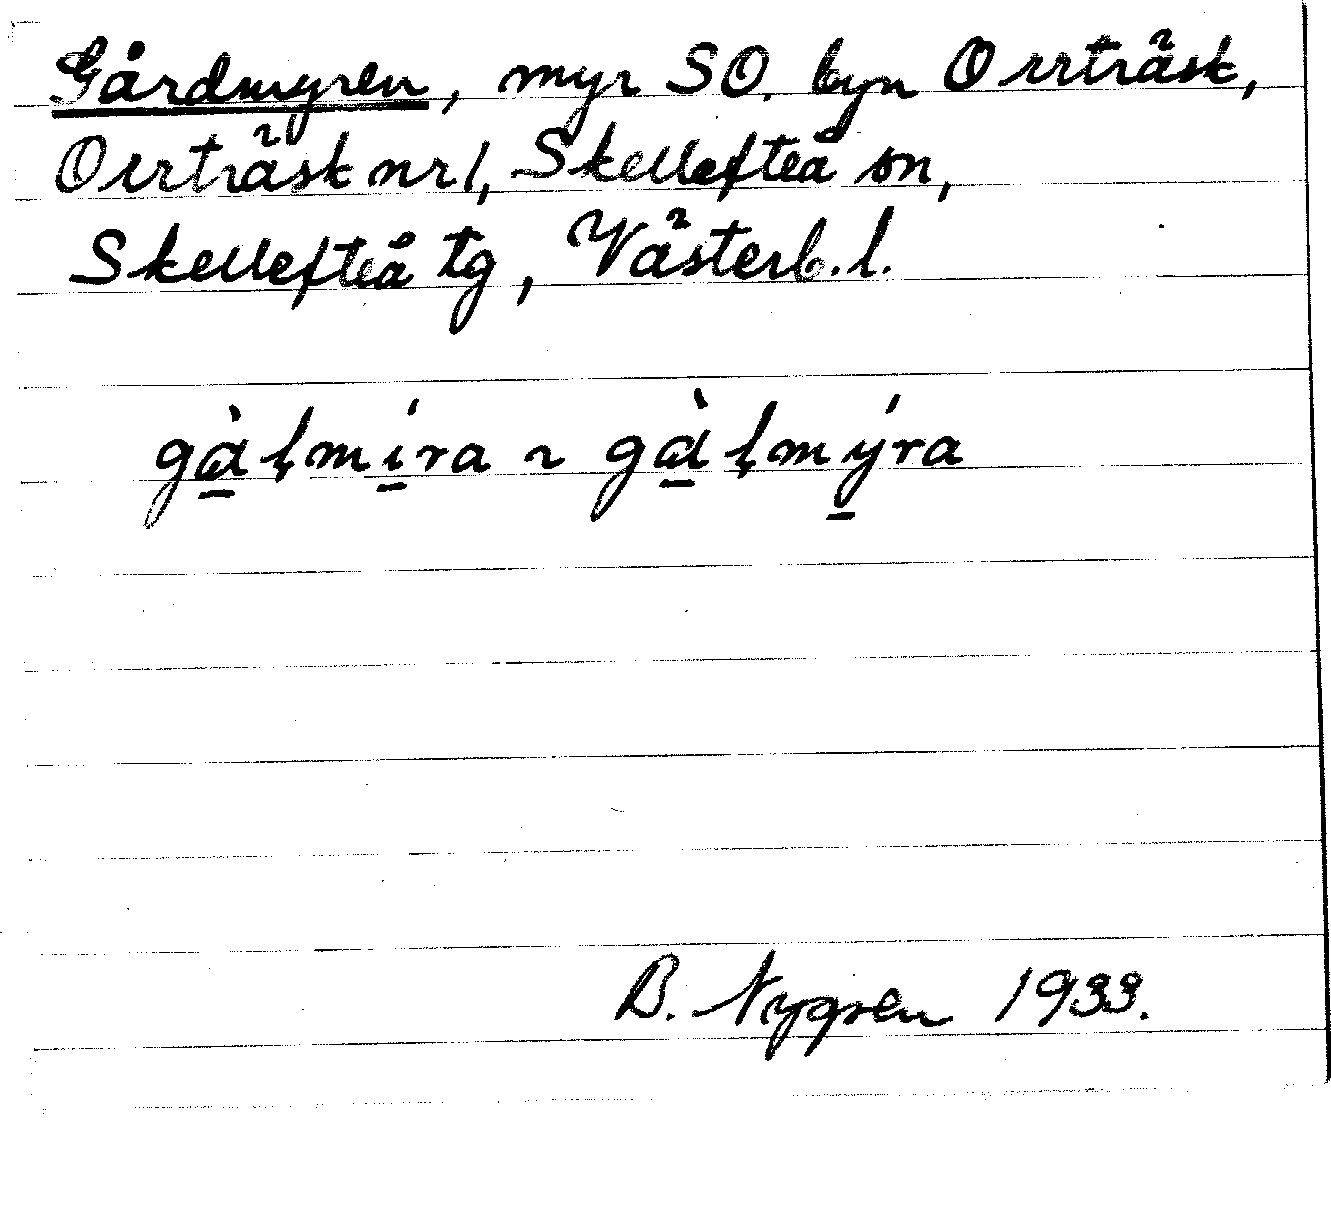 Gårdmyren, myr SO. byn Orrträsk,
Orrträsk nr 1, Skellefteå sn,
Skellefteå tg, Västerb. l.
gà̱ļmí̱ra ~ gà̱ļmý̱ra
B. Nygren 1933.